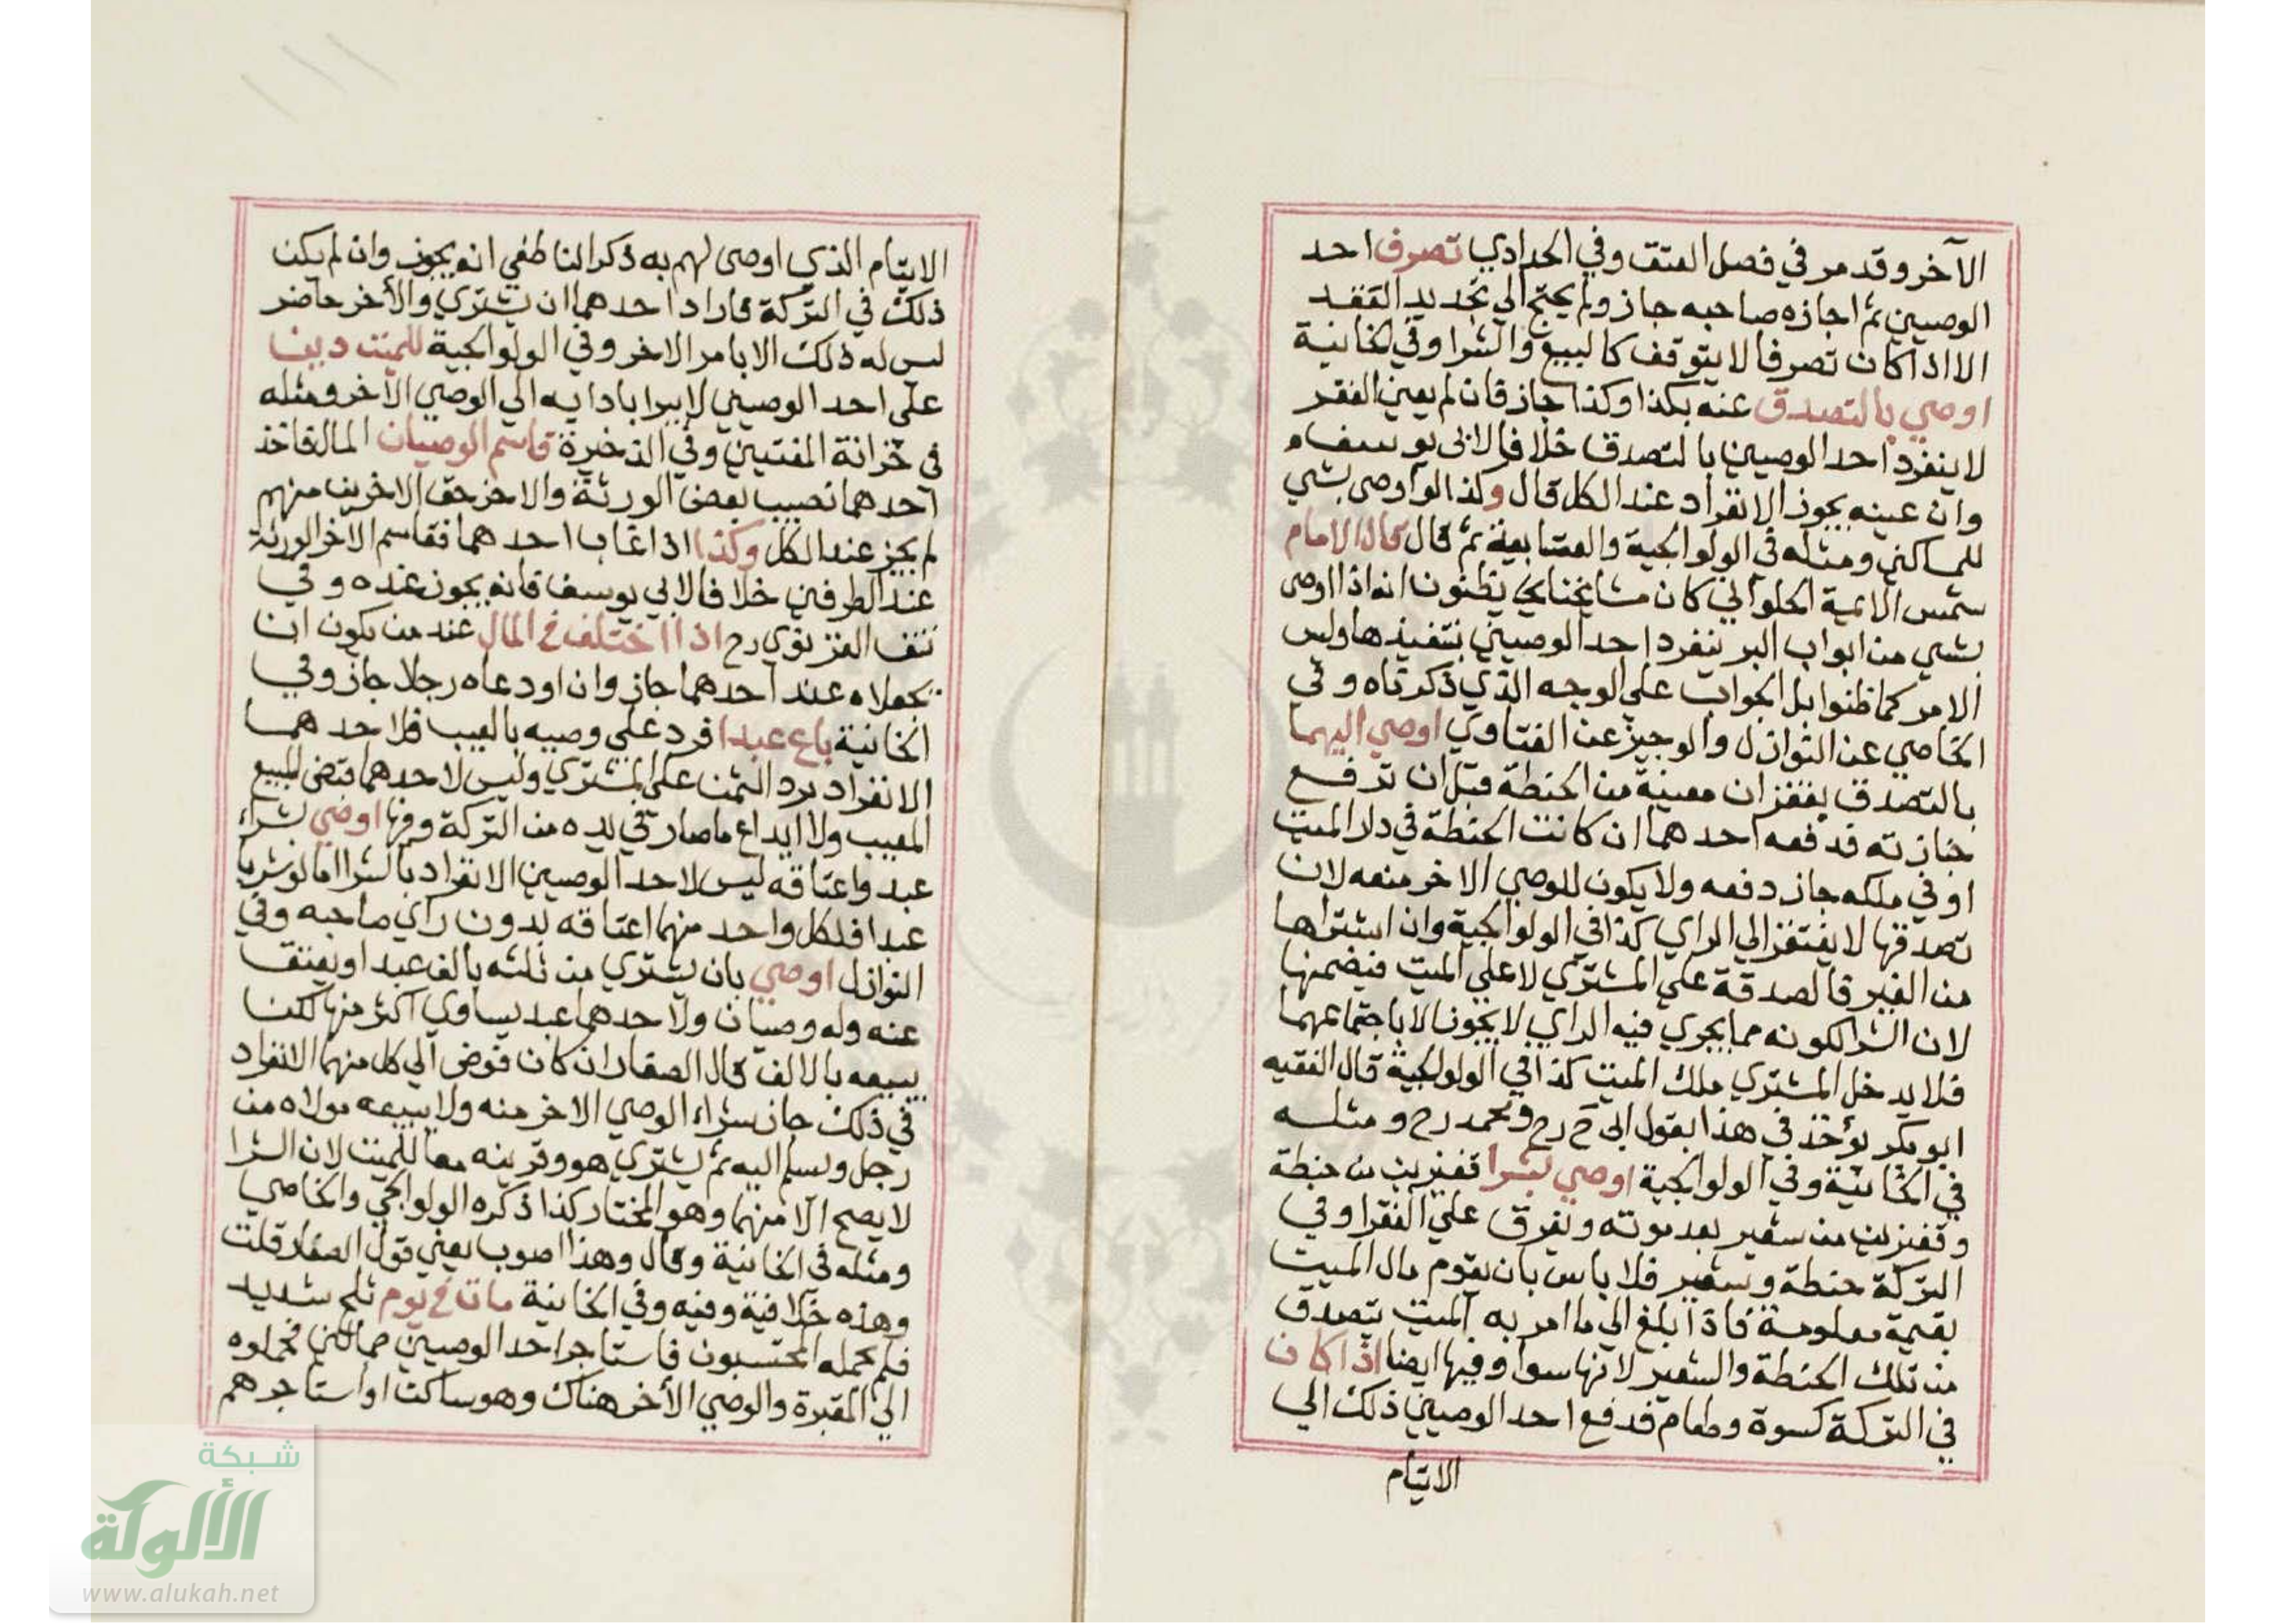 الآخر وقد مر في فصل العتق وفي الحدادي تصرف احد
الوصيين ثم اجازه صاحبه جاز ولم يحتج الي تجديد العقد
الا اذا كان تصرفا لا يتوقف كالبيع والشرا وفي الخانية
اوصي بالتصدق عنه بكذا وكذا جاز فان لم يعين الفقر
لا ينفرد احد الوصيين بالتصدق خلافا لابى يوسف
وان عينه يجوز الانفراد عند الكل قال وكذا لو اوصى بشي
للمساكين ومثله في الولوالجية والعتابية ثم قال قال الامام
شمس الائمية الحلوالي كان مشايخنا يظنون انه اذا اوصى
بشي من ابواب البر ينفرد احد الوصيين بتنفيذها وليس
الامر كما ظنوا بل الجواب علي الوجه الذي ذكرناه وفي
الخاصي عن النوازل والوجيز عن الفتاوي اوصي اليهما
بالتصدق بقفزان معينة من الحنطة قبل ان ترفع
جنازته فدفعه احدهما ان كانت الحنطة في دار الميت
او في ملكه جاز دفعه ولا يكون للوصي الاخر منعه لان
تصدقها لا يفتقر الي الراي كذا في الولوالجية وان اشتراها
من الغير فالصدقة علي المشتري لا علي الميت فيضمنها
لان الشرا لكونه مما يجري فيه الراي لا يجوز الا باجتماعهما
فلا يدخل المشتري ملك الميت كذا في الولوالجية قال الفقيه
ابو بكر يؤخذ في هذا بقول ابى ح رح ومحمد رح ومثله
في الخانية وفي الولوالجية اوصي بشرا قفيزين من حنطة
وقفيزين من شعير بعد موته ويفرق علي الفقرا وفي
التركة حنطة وشعير فلا باس بان يقوم مال الميت
بقيمة معلومة فاذا بلغ الي ما امر به الميت يتصدق
من تلك الحنطة والشعير لانها سوا وفيها ايضا اذا كان
في التركة كسوة وطعام فدفع احد الوصيين ذلك الي
الايتام
الايتام الذي اوصى لهم به ذكر الناطفي انه يجوز وان لم يكن
ذلك في التركة فاراد احدهما ان يشتري والأخر حاضر
ليس له ذلك الا بامر الاخر وفي الولوالجية للميت دينا
علي احد الوصيين لا يبرا بادايه الي الوصي الآخر ومثله
في خزانة المفتيين وفي الذخيرة قاسم الوصيان المال فاخذ
احدهما نصيب بعض الورثة والاخر حق الاخرين منهم
لم يجز عند الكل وكذا اذا غاب احدهما فقاسم الاخر الورثة
عند الطرفين خلافا لابي يوسف فانه يجوز عنده وفي
نتف الغزنوي رح اذا اختلف في المال عند من يكون ان
يجعلاه عند احدهما جاز وان اودعاه رجلا جاز وفي
الخانية باع عبدا فرد علي وصيه بالعيب فلاحدهما
الانفراد برد الثمن علي المشتري وليس لاحدهما قبض المبيع
المعيب ولا ايداع ما صار في يده من التركة وفيها اوصي بشراء
عبد واعتاقه ليس لاحد الوصيين الانفراد بالشرا اما لو شريا
عبدا فلكل واحد منهما اعتاقه بدون راي صاحبه وفي
النوازل اوصي بان يشتري من ثلثه بالف عبد او يعتق
عنه وله وصيان ولاحدهما عبد يساوي اكثر منها لكن
يبيعه بالالف قال الصفار ان كان فوض الي كل منهما الانفراد
في ذلك جاز شراء الوصي الاخر منه ولا يبيعه مولاه من
رجل ويسلم اليه ثم يشتري هو وقرينه معا للميت لان الشرا
لا يصح الا منهما وهو المختار كذا ذكره الولوالجي والخاصي
ومثله في الخانية وقال وهذا اصوب يعني قول الصفار قلت
وهذه خلافية وفيه وفي الخانية مات في يوم ثلج شديد
فلم يحمله المحتسبون فاستاجر احد الوصيين حمالين فحملوه
الي المقبرة والوصي الأخر هناك وهو ساكت او استاجرهم
شبكة
الألوكة
www.alukah.net